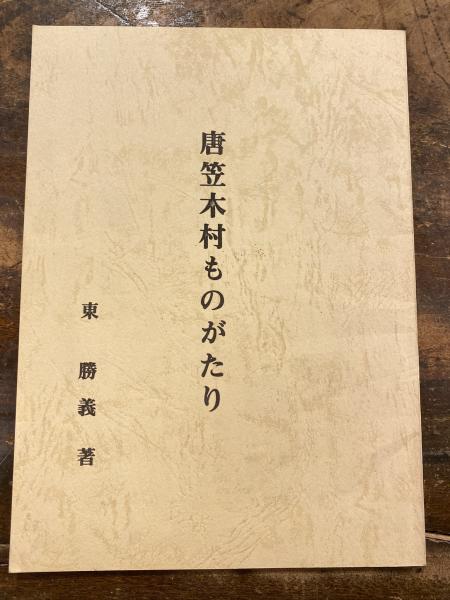 唐笠木村ものがたり
東勝義著